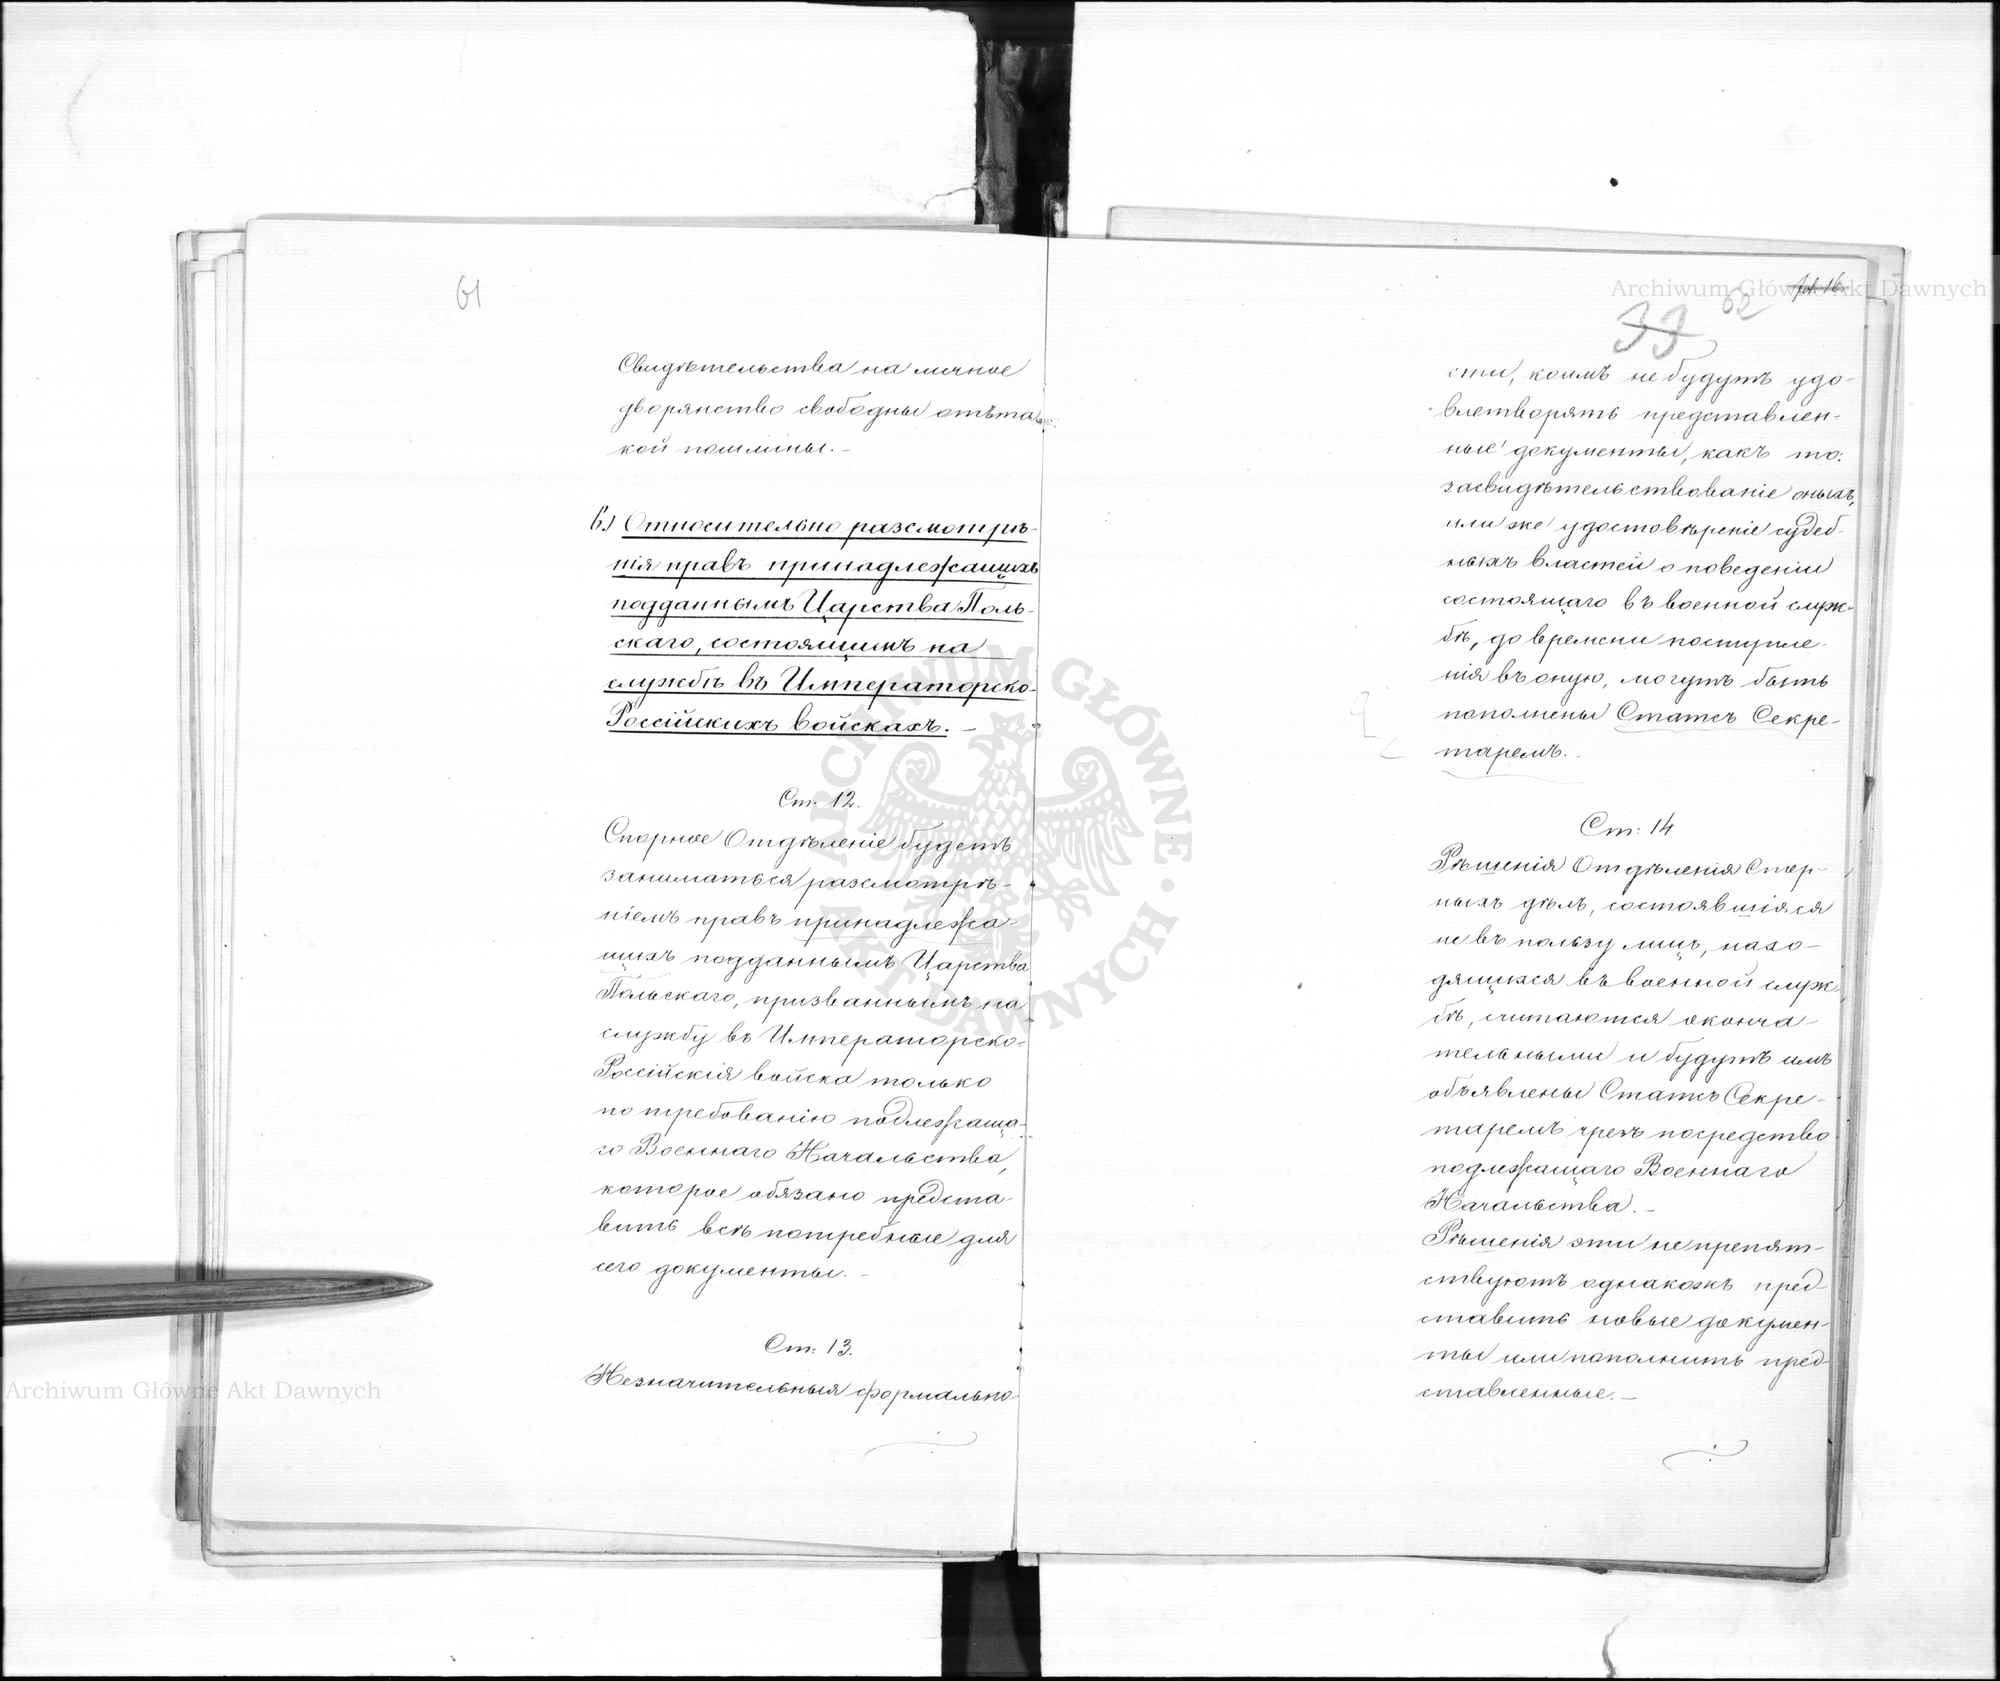 61
Свидѣтельства на личное
дворянство свободны отъ та
кой пошлины.
б.) Относительно разсмотрѣ-
нія правъ принадлежащихъ
подданнымъ Царства Поль-
скаго, состоящимъ на
службѣ въ Императорско-
Россійскихъ войскахъ. –
Ст. 12.
Спорное Отдѣленіе будетъ
заниматься разсмотрѣ-
ніемъ правъ принадлежа-
щихъ подданнымъ Царства
Польскаго, призваннымъ на
службу въ Императорско-
Россійскія войска только
по требованію подлежаща-
го Военнаго Начальства,
которое обязано предста-
вить всѣ потребные для
сего документы. –
Ст: 13.
Незначительныя формально-
fol. 16
62
33
сти, коимъ не будутъ удо-
влетворять представлен-
ные документы, какъ то:
засвидѣтельствованіе оныхъ,
или же удостовѣреніе судеб-
ныхъ властей о поведеніи
состоящаго въ военной служ-
бѣ, до времени поступле-
нія въ оную, могутъ быть
пополнены Статсъ Секре-
таремъ. –
Ст: 14
Рѣшенія Отдѣленія Спор-
ныхъ дѣлъ, состоявшіяся
не въ пользу лицъ, нахо-
дящихся въ военной служ-
бѣ, считаются оконча-
тельными и будутъ имъ
объявлены Статсъ Секре-
таремъ чрезъ посредство
подлежащаго Военнаго
Начальства. –
Рѣшенія эти не препят-
ствуютъ однакожъ пред-
ставить новые докумен-
ты или пополнить пред-
ставленные. –
Archiwum Główne Akt Dawnych
Archiwum Główne Akt Dawnych
ARCHIWUM GŁÓWNE AKT DAWNYCH